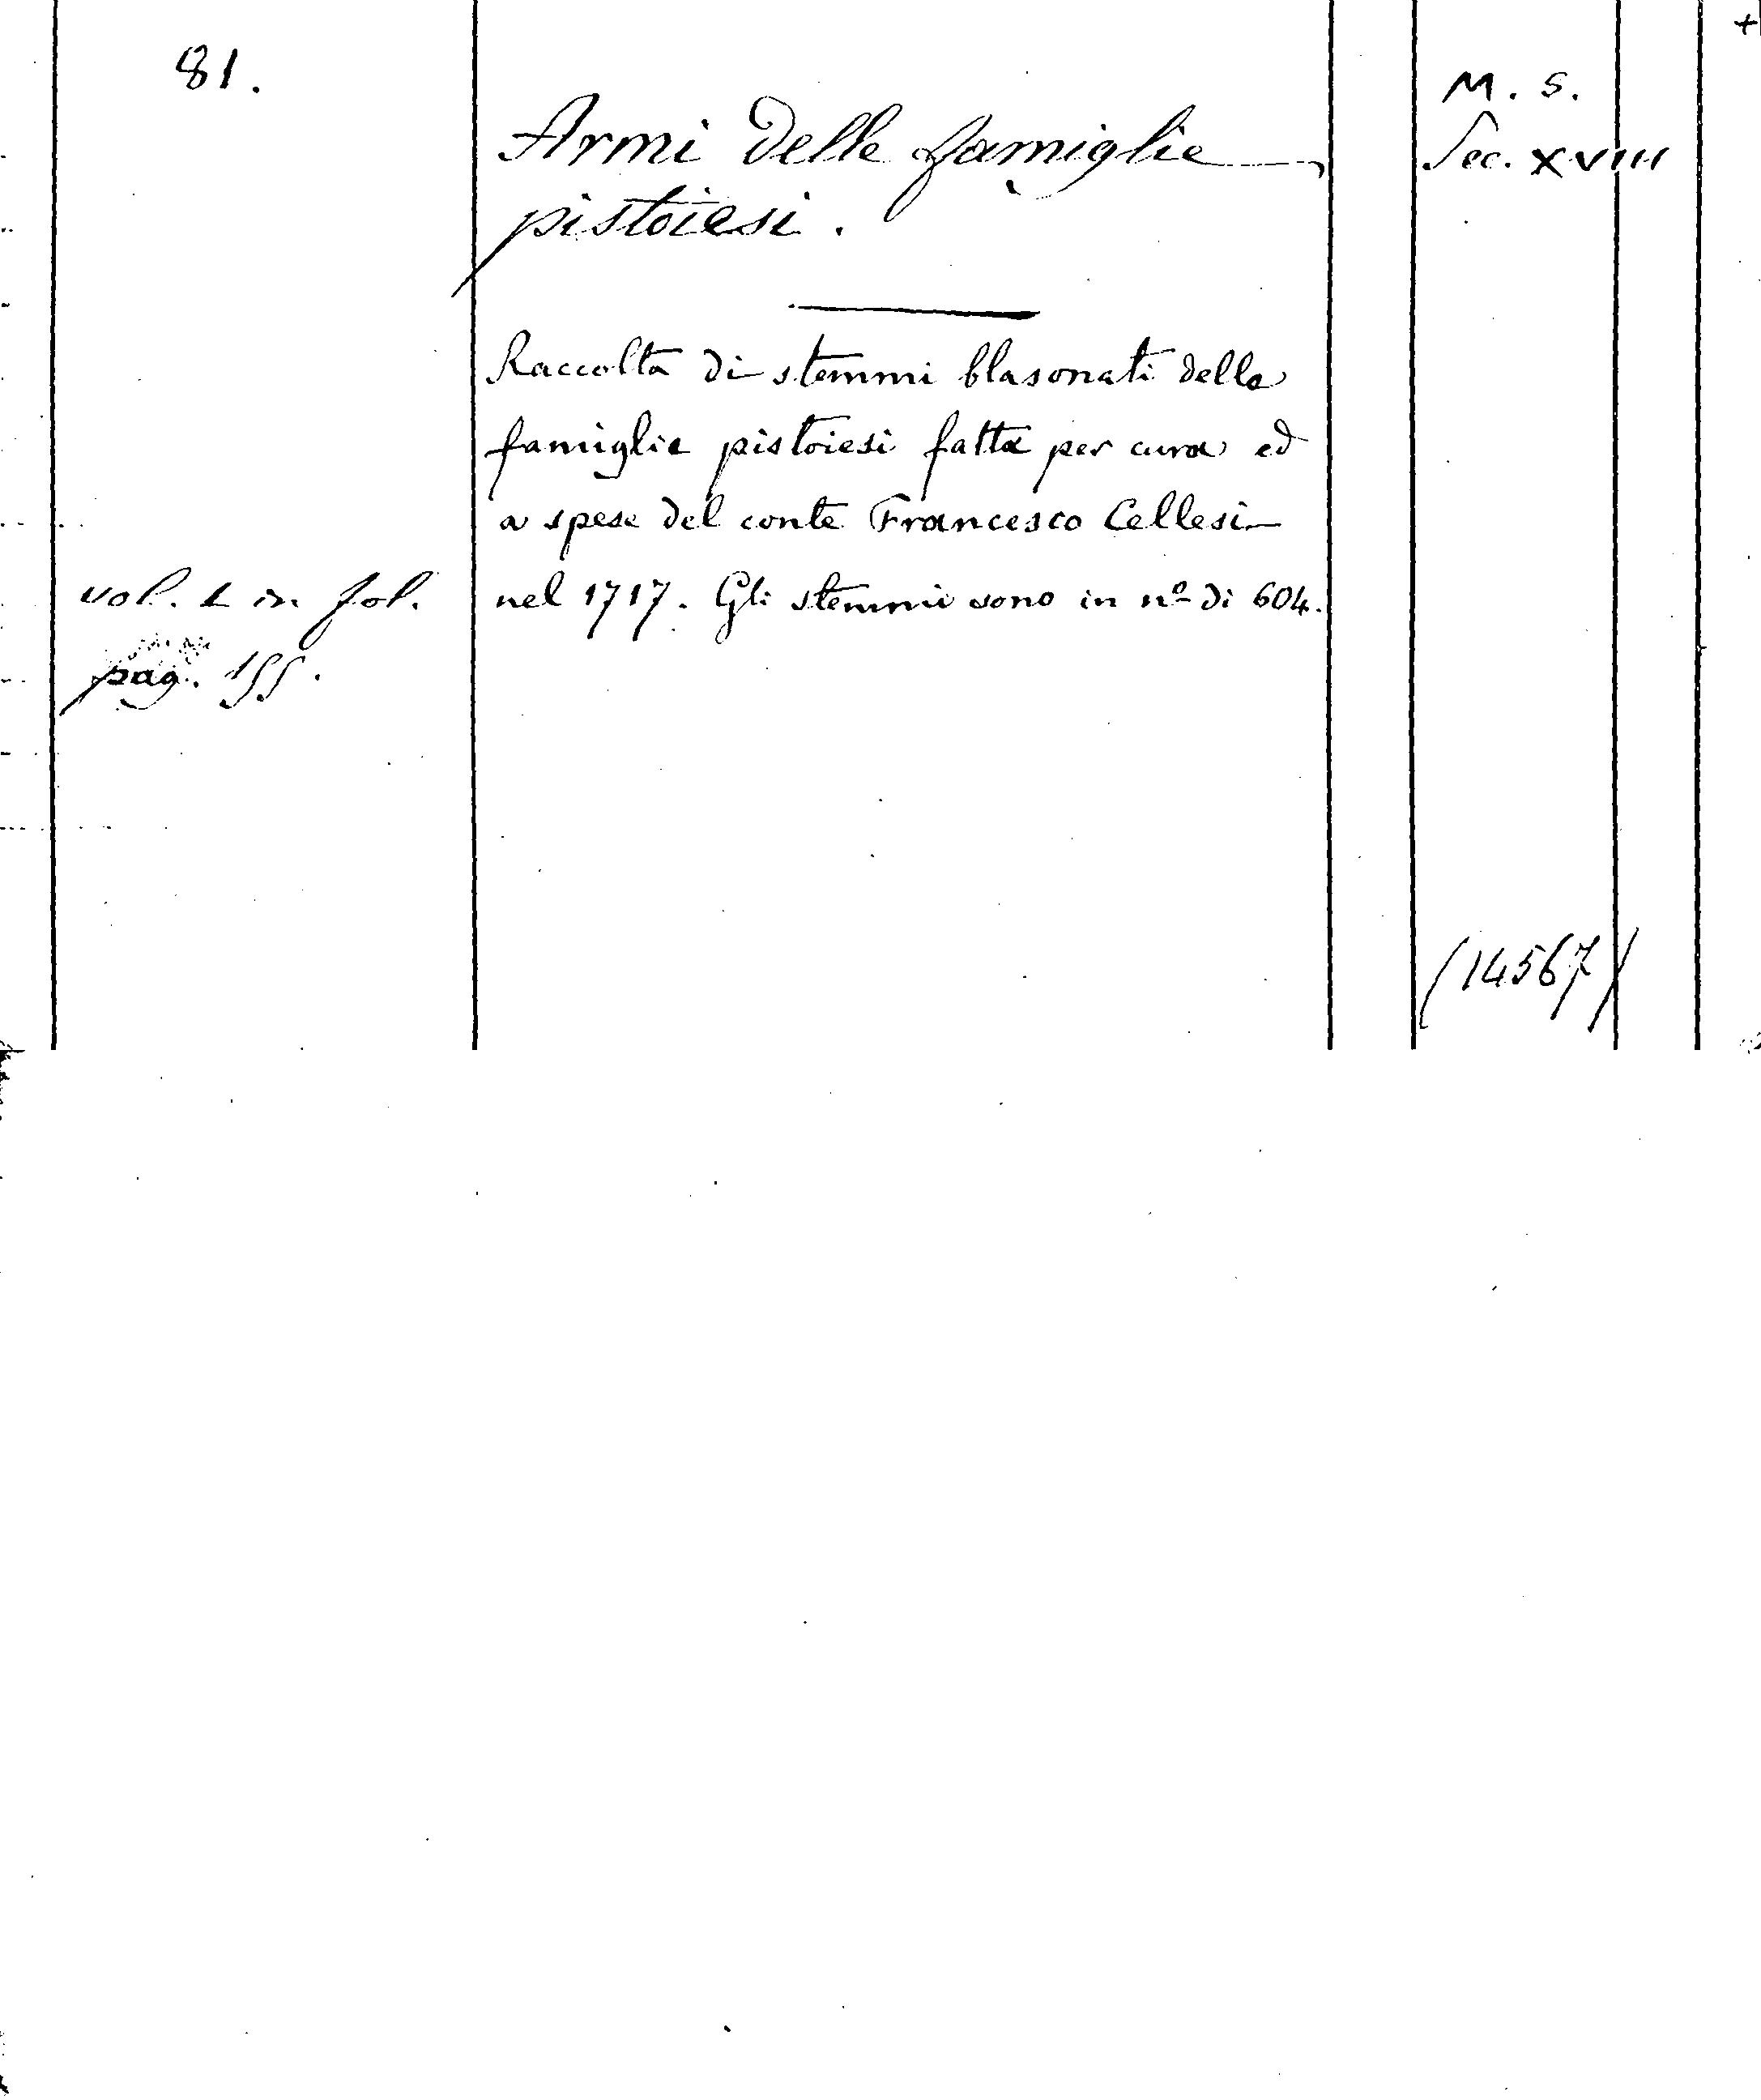 81.
Armi delle famiglie
pistoiesi.
M. S.
Sec. XVIII
Raccolta di stemmi blasonati delle
famiglie pistoiesi fatta per cura ed
a spese del conte Francesco Cellesi
nel 1717. Gli stemmi sono in nº di 604.
vol. 1 in fol.
pag. 155.
(14567)